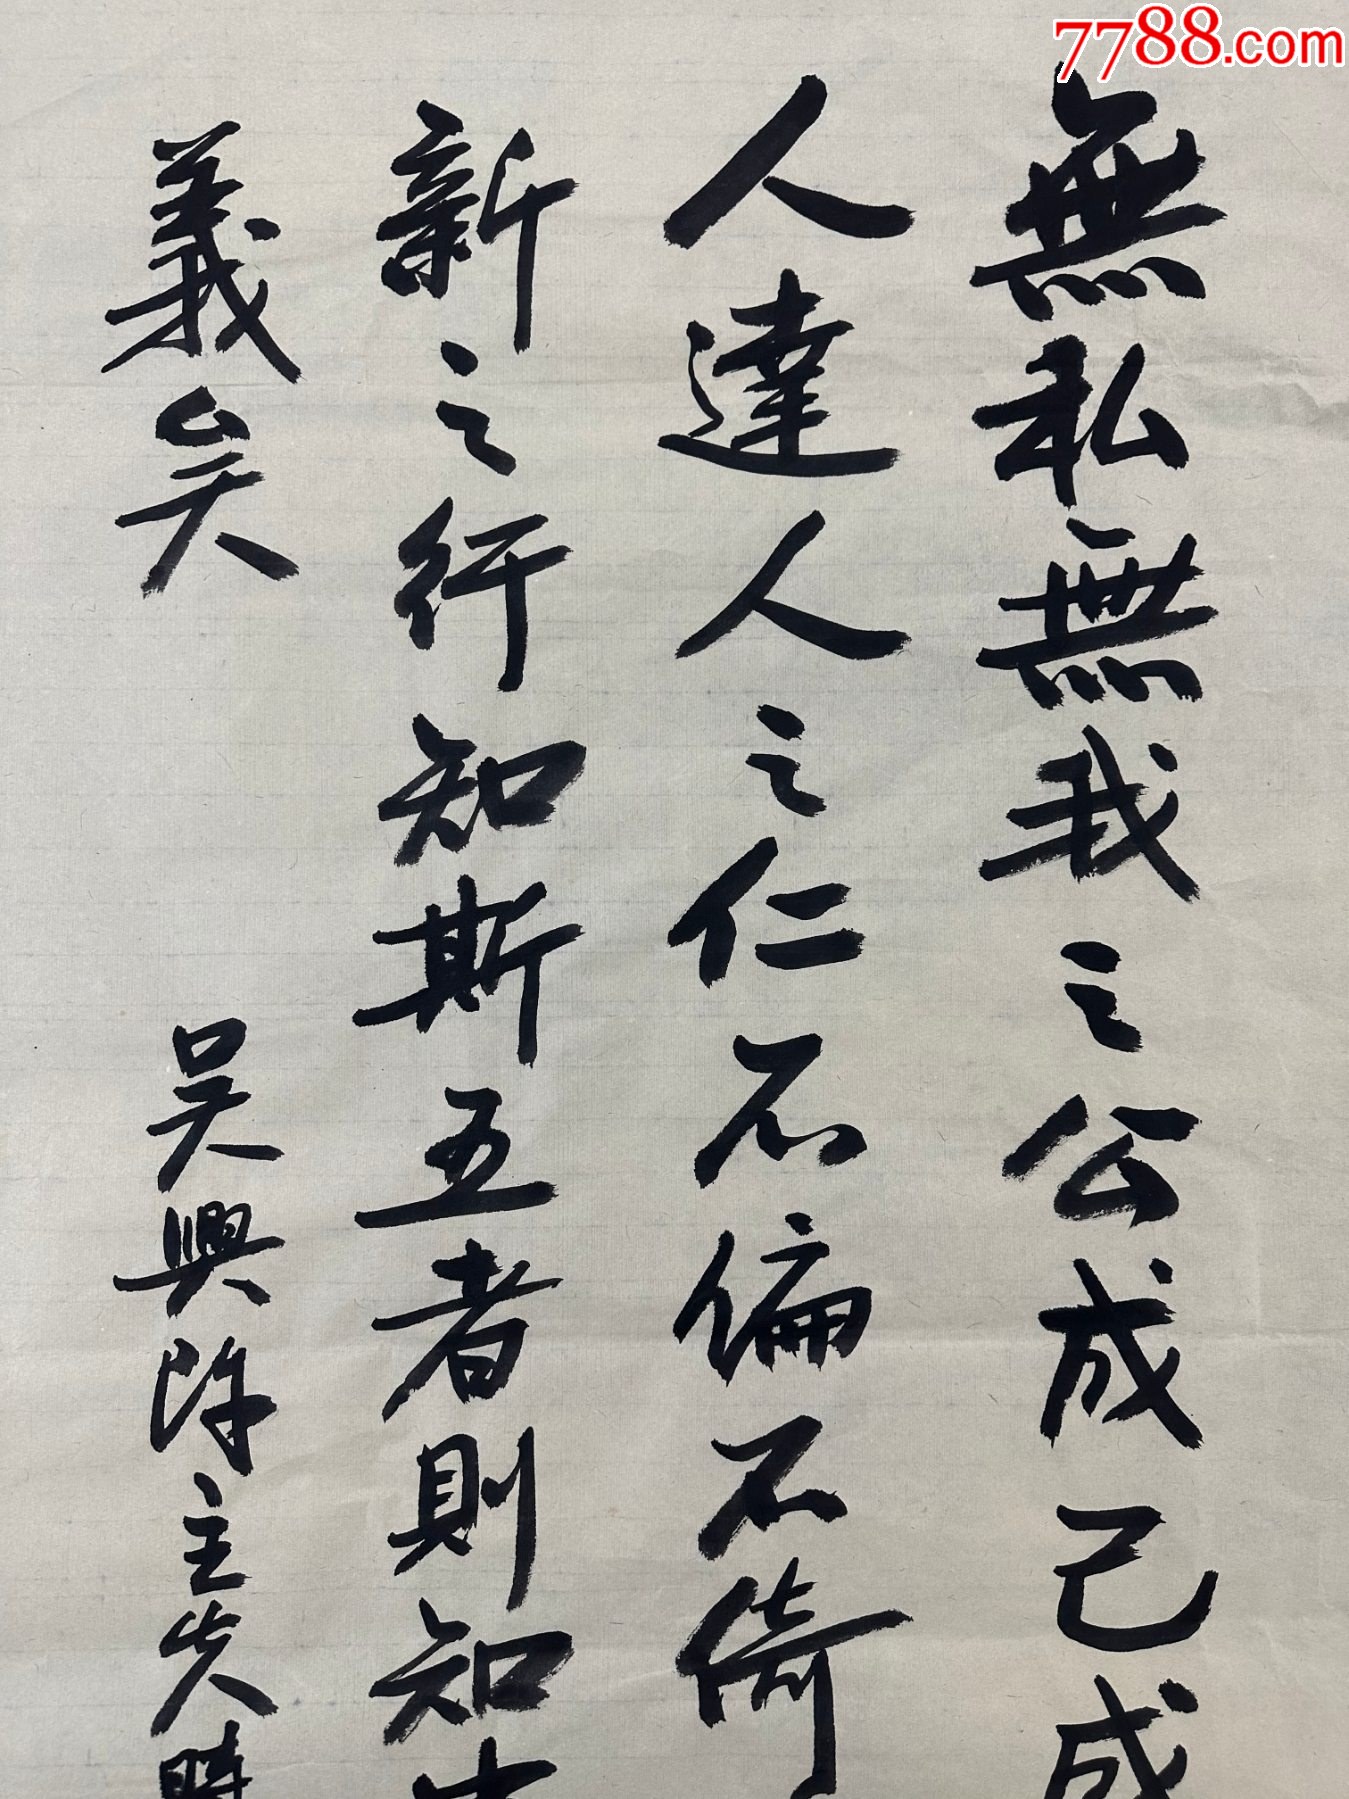 7788.com
無私無我之公成己成
人達人之仁不偏不倚
新之行知斯五者則知
義矣
吳興陳立夫時